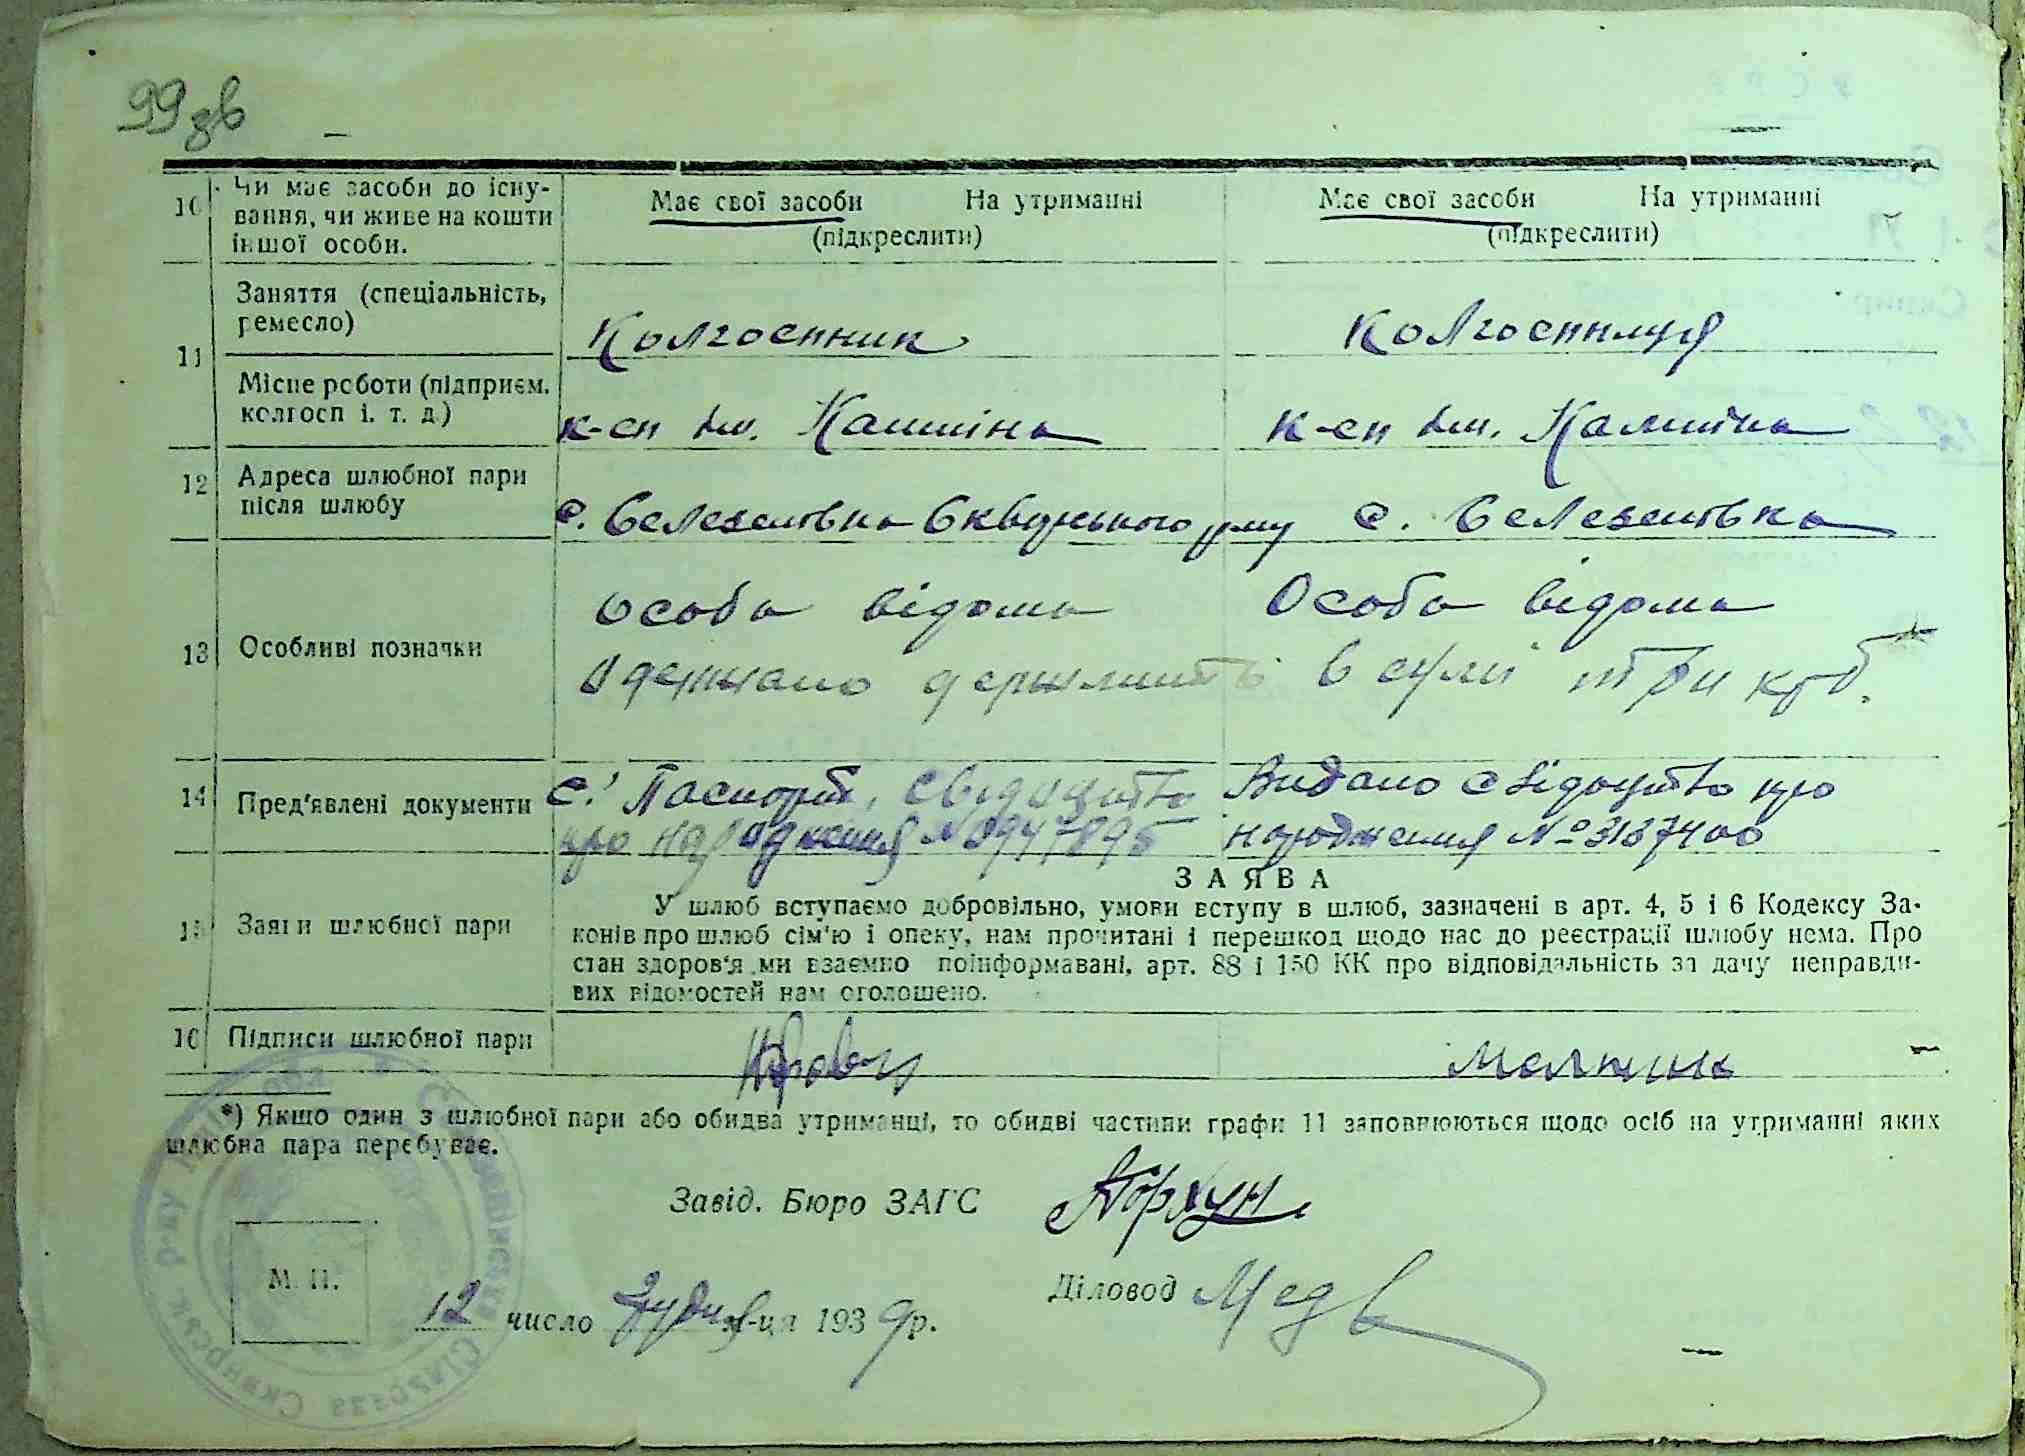 99 зв
10 Чи має засоби до існу- Має свої засоби На утриманні Має свої засоби На утриманні
вання, чи живе на кошти (підкреслити) (підкреслити)
іншої особи.
11 Заняття (спеціальність,
ремесло) Колгоспник Колгоспниця
Місце роботи (підприєм.
колгосп і. т. д.) к-сп ім. Калініна к-сп ім. Калініна
12 Адреса шлюбної пари
після шлюбу с. Селезенівка Сквирського р-ну с. Селезенівка
13 Особливі позначки Особа відома Особа відома
Одержано держмита в сумі три крб.
14 Пред'явлені документи Є. Паспорт, свідоцтво Видано свідоцтво про
про народження № 0947895 народження № 3137400
ЗАЯВА
15 Заяви шлюбної пари У шлюб вступаємо добровільно, умови вступу в шлюб, зазначені в арт. 4, 5 і 6 Кодексу За-
конів про шлюб сім'ю і опеку, нам прочитані і перешкод щодо нас до реєстрації шлюбу нема. Про
стан здоров'я ми взаємно поінформавані, арт. 88 і 150 КК про відповідальність за дачу неправди-
вих відомостей нам оголошено.
16 Підписи шлюбної пари Мельник
*) Якщо один з шлюбної пари або обидва утриманці, то обидві частини графи 11 заповнюються щодо осіб на утриманні яких
шлюбна пара перебуває.
Завід. Бюро ЗАГС
М. П.
Діловод Медв
12 число Грудня м-ця 1939 р.